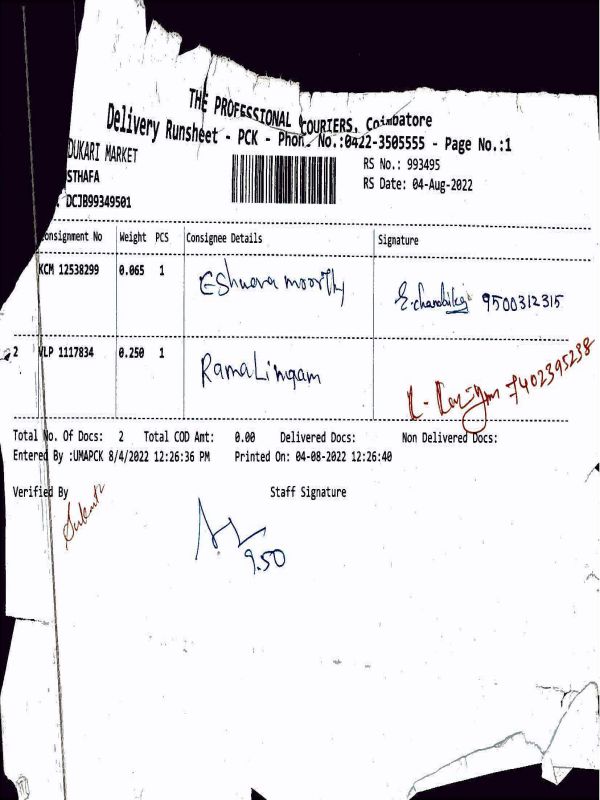 THE PROFESSIONAL COURIERS, Coimbatore
Delivery Runsheet - PCK - Phon. No.:0422-3505555 - Page No.:1
DUKARI MARKET
RS No.: 993495
STHAFA
RS Date: 04-Aug-2022
DCJB99349501
onsignment No Weight PCS Consignee Details Signature
KCM 12538299 0.065 1 Eshwara moorthy 9500312315
2 VLP 1117834 0.250 1 RamaLingam 7402395238
Total No. Of Docs: 2 Total COD Amt: 0.00 Delivered Docs: Non Delivered Docs:
Entered By :UMAPCK 8/4/2022 12:26:36 PM Printed On: 04-08-2022 12:26:40
Verified By Staff Signature
9.50